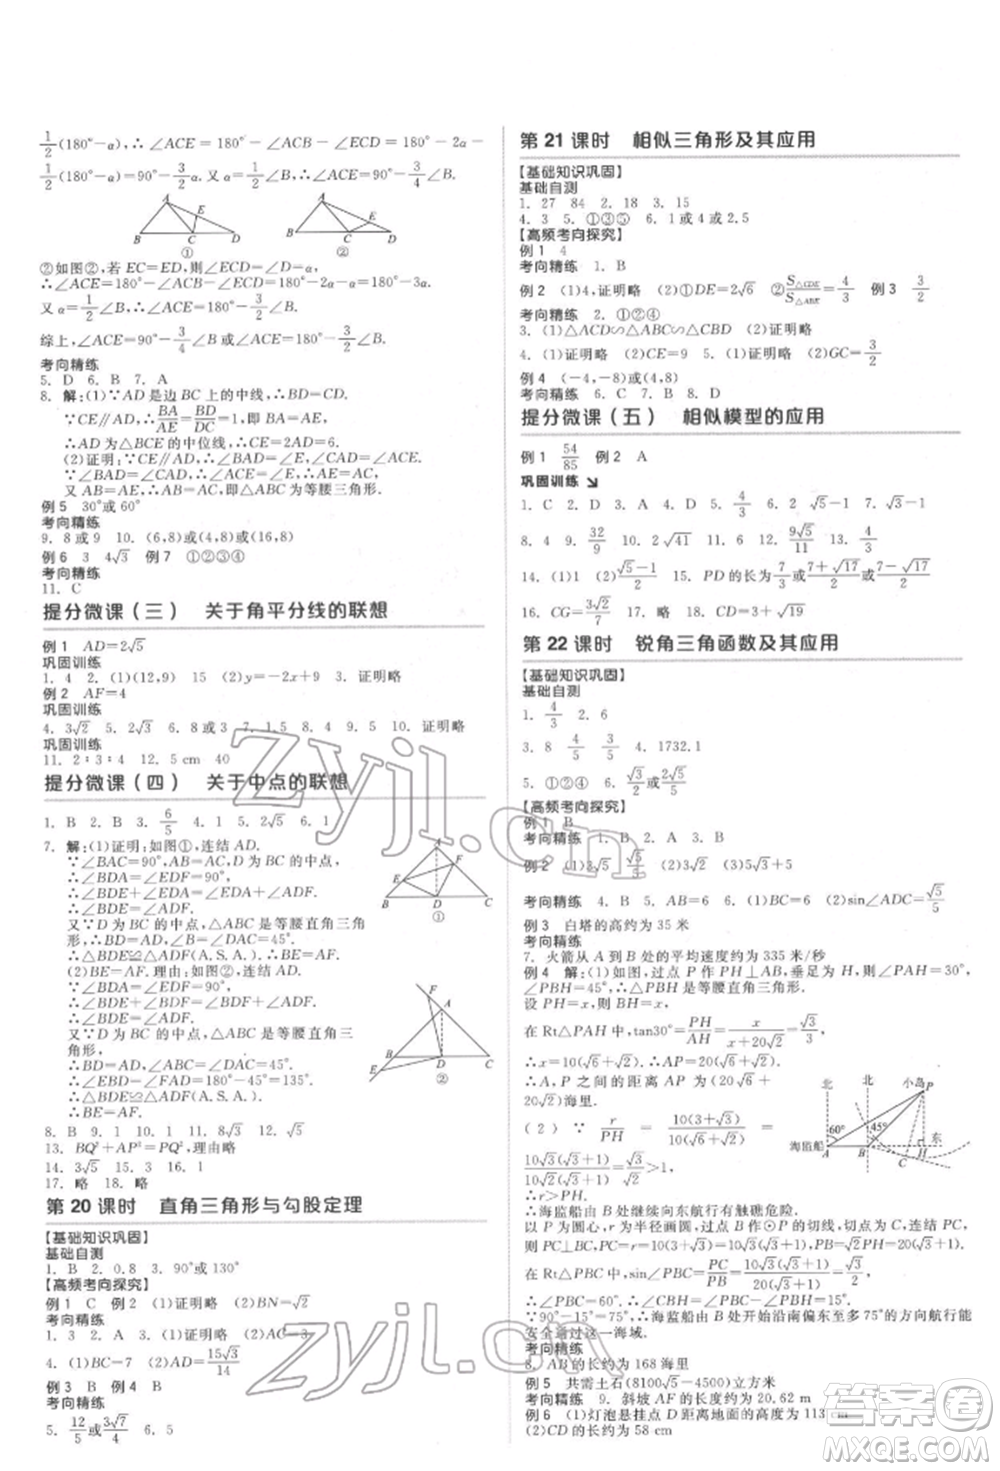 1/2(180°-α),∴∠ACE=180°-∠ACB-∠ECD=180°-2α-
1/2(180°-α)=90°-3/2α.又α=1/2∠B,∴∠ACE=90°-3/4∠B.
A E B C D ①
A E B C D ②
②如图②,若EC=ED,则∠ECD=∠EDC=α,
∴∠ACE=180°-∠ACB-∠ECD=180°-2α-α=180°-3α.
又α=1/2∠B,∴∠ACE=180°-3/2∠B.
综上,∠ACE=90°-3/4∠B或∠ACE=180°-3/2∠B.
考向精练
5. D 6. B 7. A
8. 解:(1)∵AD是边BC上的中线,∴BD=CD.
∵CE∥AD,∴BA/AE=BD/DC=1,即BA=AE,
∴AD为△BCE的中位线,∴CE=2AD=6.
(2)证明:∵CE∥AD,∴∠BAD=∠E,∠CAD=∠ACE.
∵∠BAD=∠CAD,∴∠ACE=∠E,∴AE=AC.
又AB=AE,∴AB=AC,即△ABC为等腰三角形.
例5 30°或60°
考向精练
9. 8或9 10. (6,8)或(24,8)或(16,8)
例6 3 4√3 例7 ①②③④
考向精练
11. C
提分微课(三) 关于角平分线的联想
例1 AD=2√5
巩固训练
1. 4 2. (1)(12,9) (2)y=-2x+9 3. 证明略
例2 AF=4
巩固训练
4. 3√2 5. 2√5 6. 8或3 7. 1.5 8. 4 9. 5 10. 证明略
巩固训练
11. 2∶3∶4 12. 5 cm 40
提分微课(四) 关于中点的联想
1. B 2. B 3. 6/5 4. 1 5. 2√3 6. 1
7. 解:(1)证明:如图①,连结AD.
∵∠BAC=90°,AB=AC,∴∠B=∠C=45°.
∵∠BDA=∠EDF=90°,
∴∠BDE+∠EDA=∠EDA+∠ADF,
∴∠BDE=∠ADF.
又∵D为BC的中点,△ABC是等腰直角三角
形,∴BD=AD,∠B=∠DAC=45°,
∴△BDE≌△ADF(A.S.A.),∴BE=AF.
(2)BE=AF.理由:如图②,连结AD.
∵∠BDA=∠EDF=90°,
∴∠BDE=∠ADF.
又∵D为BC的中点,△ABC是等腰直角三
角形,∴BD=AD,∠ABC=∠BAD=45°.
∴∠EBD=∠FAD=180°-45°=135°.
∴△BDE≌△ADF(A.S.A.),
∴BE=AF.
A F E B D C ①
F A B D C E ②
8. B 9. 1 10. 1 11. 8√3 12. 5
13. BQ²+AP²=PQ²,理由略
14. 3√5 15. 3 16. 1
17. 略 18. 略
第20课时 直角三角形与勾股定理
【基础知识巩固】
基础自测
1. B 2. 0.8 3. 90°或130°
【高频考向探究】
例1 C 例2 (1)证明略 (2)BN=√2
考向精练
1. D 2. A 3. (1)证明略 (2)AC=3
4. (1)BC=7 (2)AD=15√3/14
例3 B 例4 B
考向精练
5. 12/5或3√7/4 6. 5
第21课时 相似三角形及其应用
【基础知识巩固】
基础自测
1. 27 84 2. 18 3. 15
4. 3 5. ①③⑤ 6. 1或4或2.5
【高频考向探究】
例1 4
考向精练 1. B
例2 (1)4,证明略 (2)①DE=2√6 ②S△CDE/S△ABE=4/3 例3 3/2
考向精练 2. ①②④
3. (1)△ACD∽△ABC∽△CBD (2)证明略
4. (1)证明略 (2)CE=9 5. (1)证明略 (2)GC=3/2
例4 (-4,-8)或(4,8)
考向精练 6. C 7. B 8. D
提分微课(五) 相似模型的应用
例1 54/85 例2 A
巩固训练
1. C 2. D 3. A 4. D 5. 4/3 6. 2 √5-1 7. √5-1
8. 4 9. 32/9 10. 2√41 11. 2/3 12. 9√5/11 13. 4/3
14. (1)证明略 (2)(√5-1)/2 15. PD的长为2/3或(7+√17)/4或(7-√17)/2
16. CG=3√2/7 17. 略 18. 3+√19
第22课时 锐角三角函数及其应用
【基础知识巩固】
基础自测
1. 4/3 2. 6
3. 8 4/5 3/5 4/3 4. 1732.1
5. ①③④ 6. √2/2或2√5/5
【高频考向探究】
例1 B
考向精练 1. B 2. A 3. B
例2 (1)3√5 √5/3 (2)3√2 (3)2√5/3+5
考向精练 4. B 5. (1)AB=6 6. (1)BC=2 (2)sin∠ADC=√5/5
例3 白塔的高约为35米
考向精练
7. 火箭从A到B处的平均速度约为335米/秒
例4 解:(1)如图,过点P作PH⊥AB于H,则∠PAH=30°,
∠PBH=45°,∴△PBH为等腰直角三角形,∴BH=PH.
设PH=x,则BH=x.
在Rt△PAH中,tan30°=PH/AH=x/(x+20√2)=√3/3,
∴x=10(√6+√2),∴AP=2PH=20(√6+√2).
∴A,P之间的距离AP为
20(√6+√2)海里.
(2)∵r/PH=10(3+√3)/10(√6+√2)=
10√3(√3+1)/10√2(√3+1)=√6/2>1,
∴r>PH.
∴海监船由B处继续向东航行有触礁危险.
以P为圆心,r为半径画圆,过点B作⊙P的切线,切点为C,连结PC,
则PC⊥BC,在Rt△PBC中,sin∠PBC=PC/PB=
∴∠PBC=60°,∴∠CBH=60°-45°=15°.
∵90°-15°=75°,∴海监船由B处开始沿南偏东至多75°的方向航行能
安全通过这一海域.
北 北 小岛 P 60° 45° 海监船 A B H 东 C
考向精练
8. AB的长约为168海里
例5 共需土石(8100√5-4500)立方米
考向精练 9. 斜坡AF的长度约为20.62 m
例6 (1)灯泡悬挂点D距离地面的高度为113 cm
(2)CD的长约为58 cm
zyjl.cn
zyjl.cn
答案圈
MXQE.COM